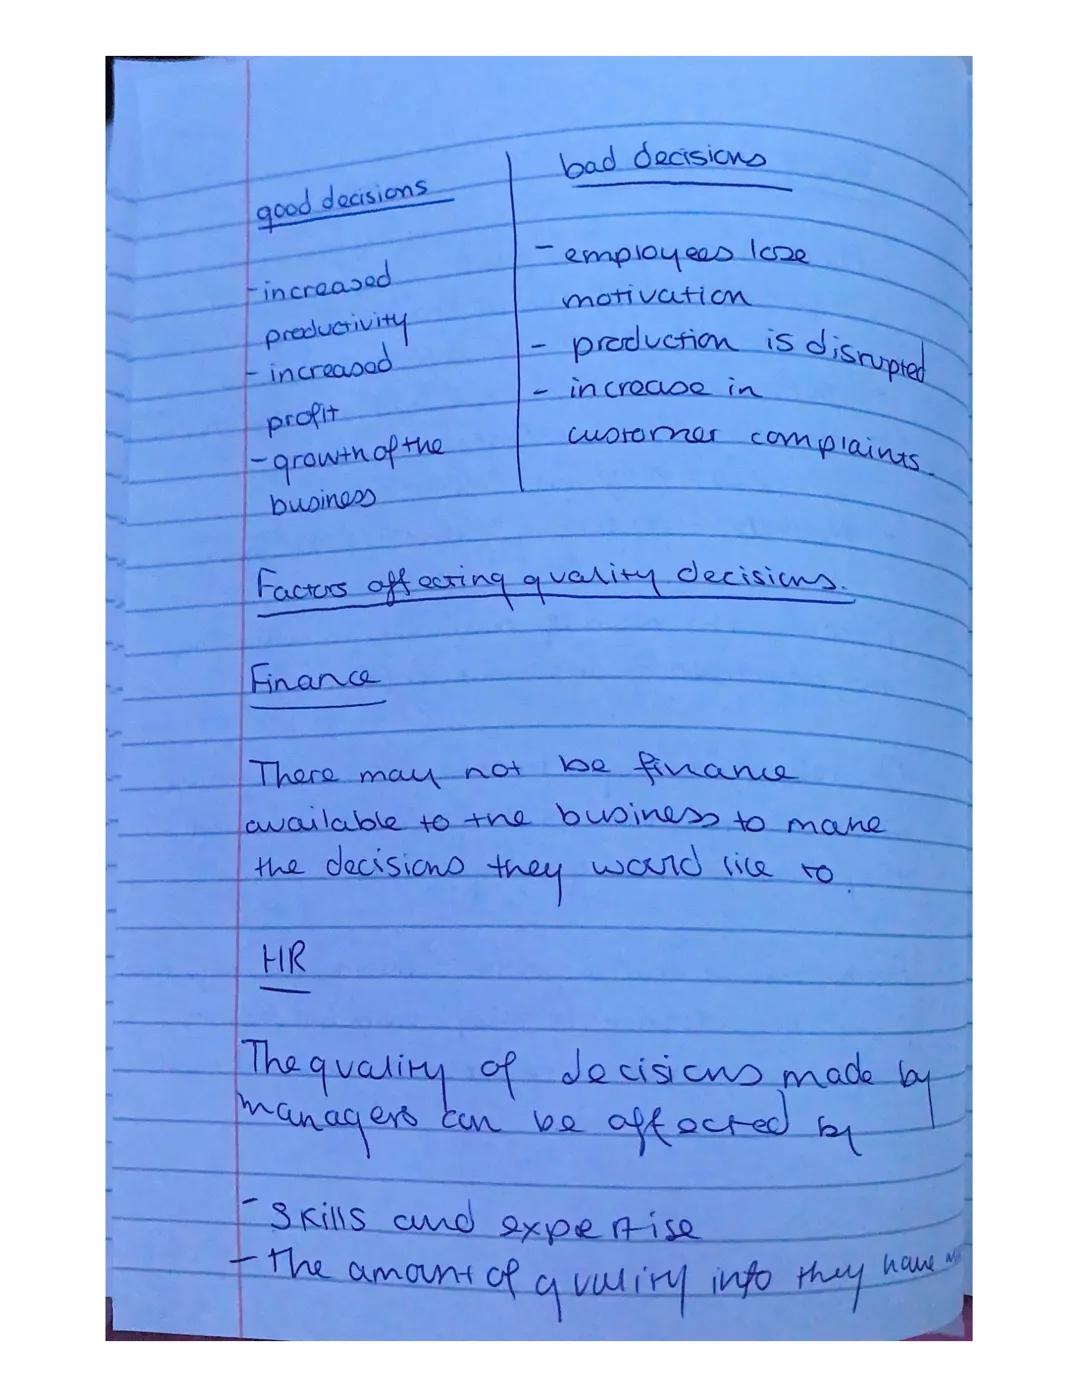 good decisions
- increased
productivity
- increased
profit
- growth of the
business
bad decisions
- employees lose
motivation
- production is disrupted
- increase in
customer complaints
Factors affecting quality decisions.
Finance
There may not be finance
available to the business to make
the decisions they would like to.
HR
The quality of decisions made by
managers can be affected by
- Skills and expertise
- The amount of quality info they have